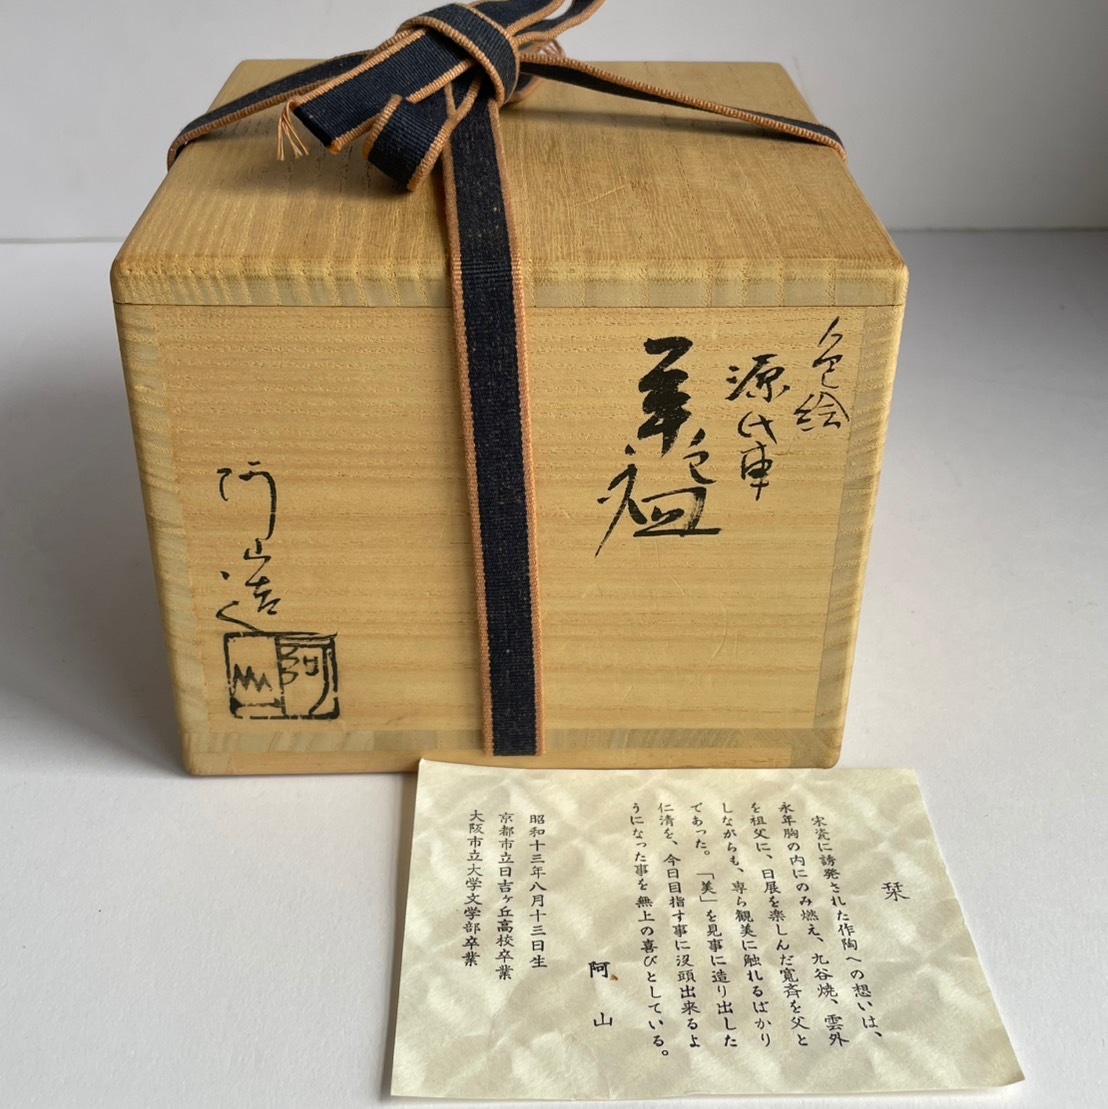 色絵
源氏車
茶碗
阿山造
阿山
栞
宋瓷に誘発された作陶への想いは、
永年胸の内にのみ燃え、九谷焼、雲外
を祖父に、日展を楽しんだ寛斉を父と
しながらも、専ら観美に触れるばかり
であった。「美」を見事に造り出した
仁清を、今日目指す事に没頭出来るよ
うになった事を無上の喜びとしている。
阿山
昭和十三年八月十三日生
京都市立日吉ヶ丘高校卒業
大阪市立大学文学部卒業